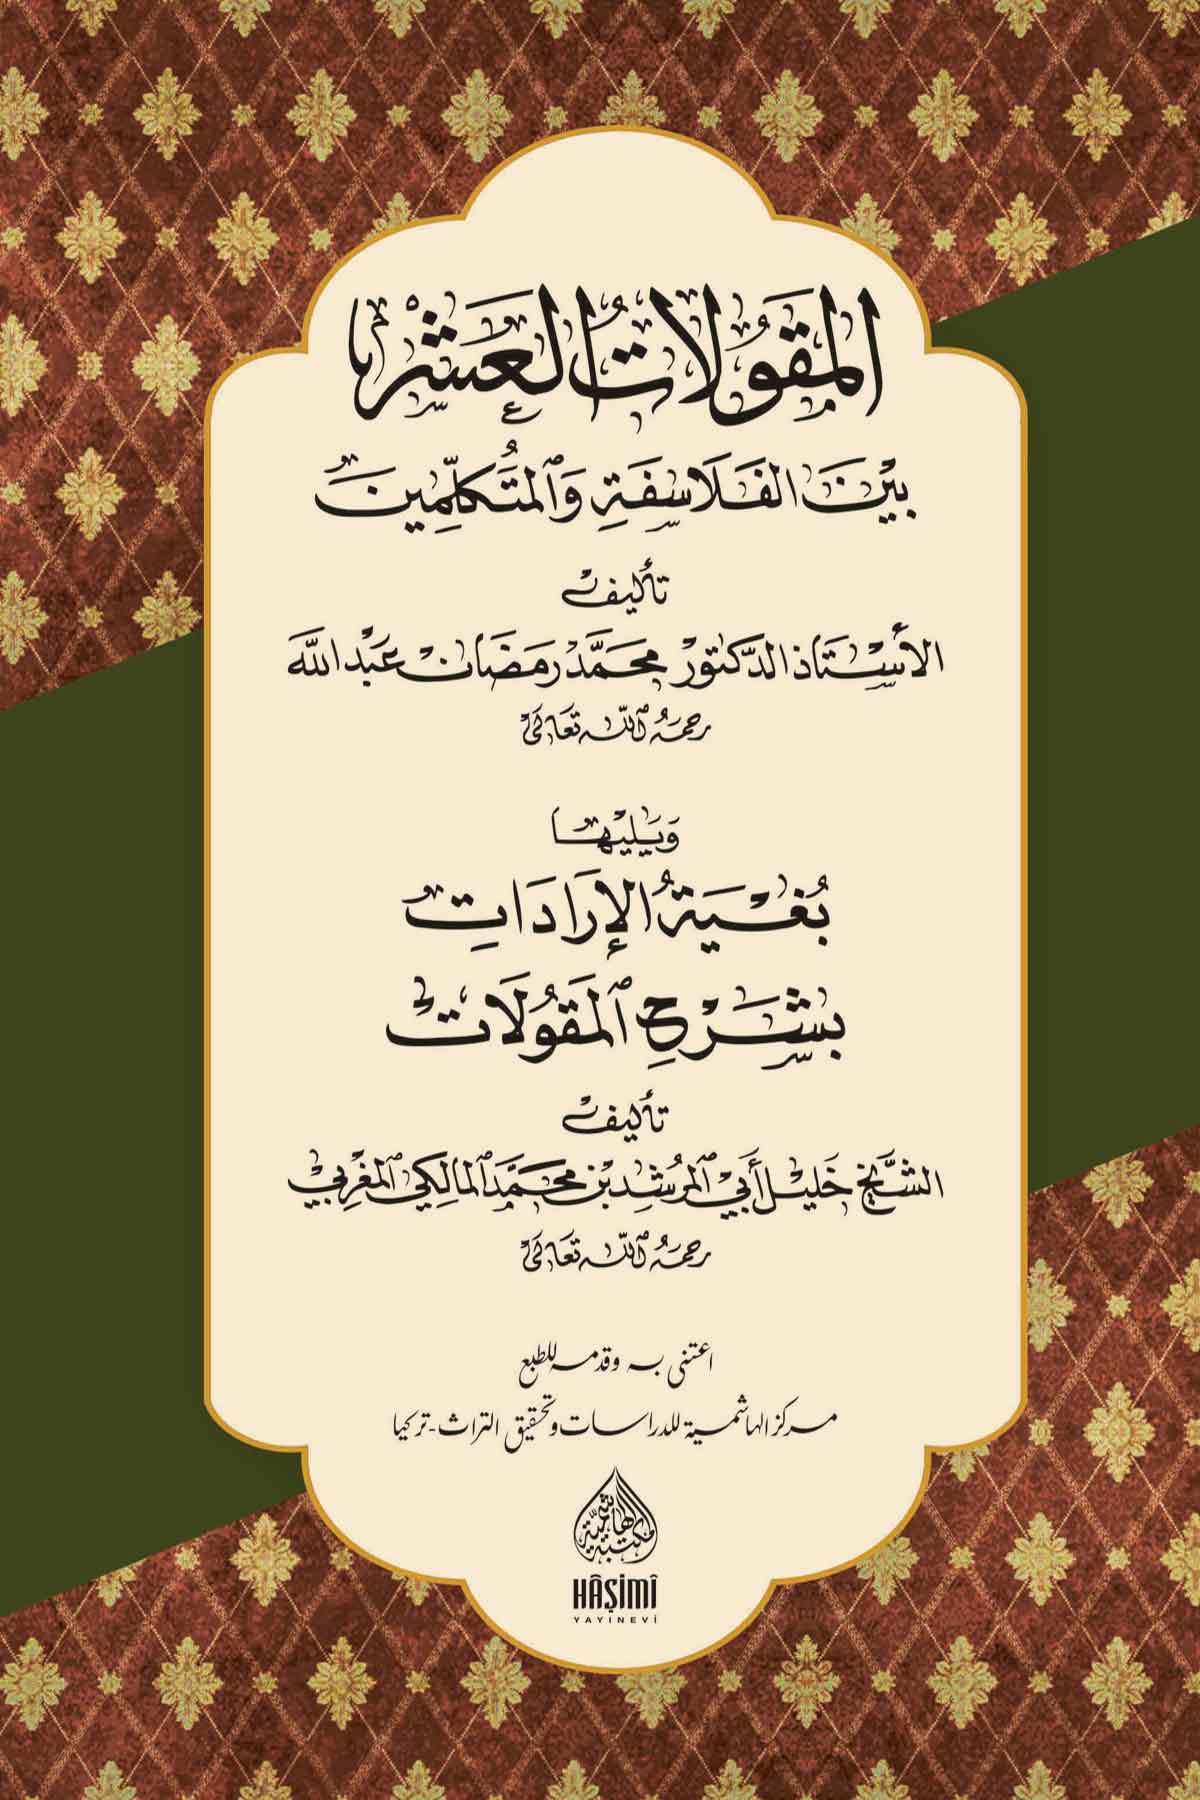 المَقُولَاتُ العَشْر
بَيْنَ الفَلَاسِفَةِ وَالمُتَكَلِّمِينَ
تأليف
الأسْتَاذ الدَّكتور محَمَّد رمَضَان عَبْد الله
رحمهُ الله تعَالى
وَيَليْها
بُغْيَةُ الإِرَادَاتِ
بشَرْحِ المَقُولَات
تأليف
الشَّيْخ خَليْل أَبي المُرشد بْن محَمَّد المَالِكي المَغْرِبي
رحمهُ الله تعَالى
اعتنى به وقدمه للطبع
مركز الهاشمية للدراسات وتحقيق التراث-تركيا
مكتبة الهاشمية
HÂŞİMÎ
YAYINEVİ